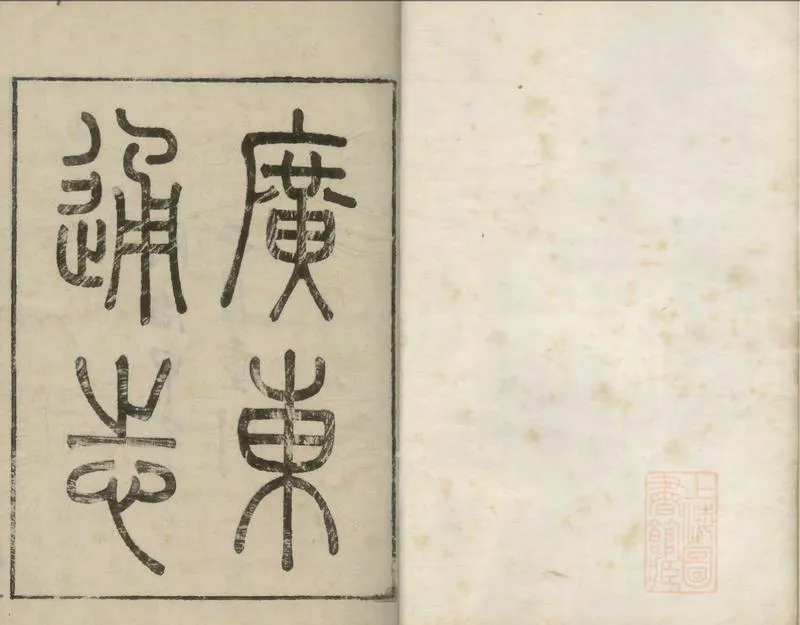 廣東
通志
上海圖
書館藏